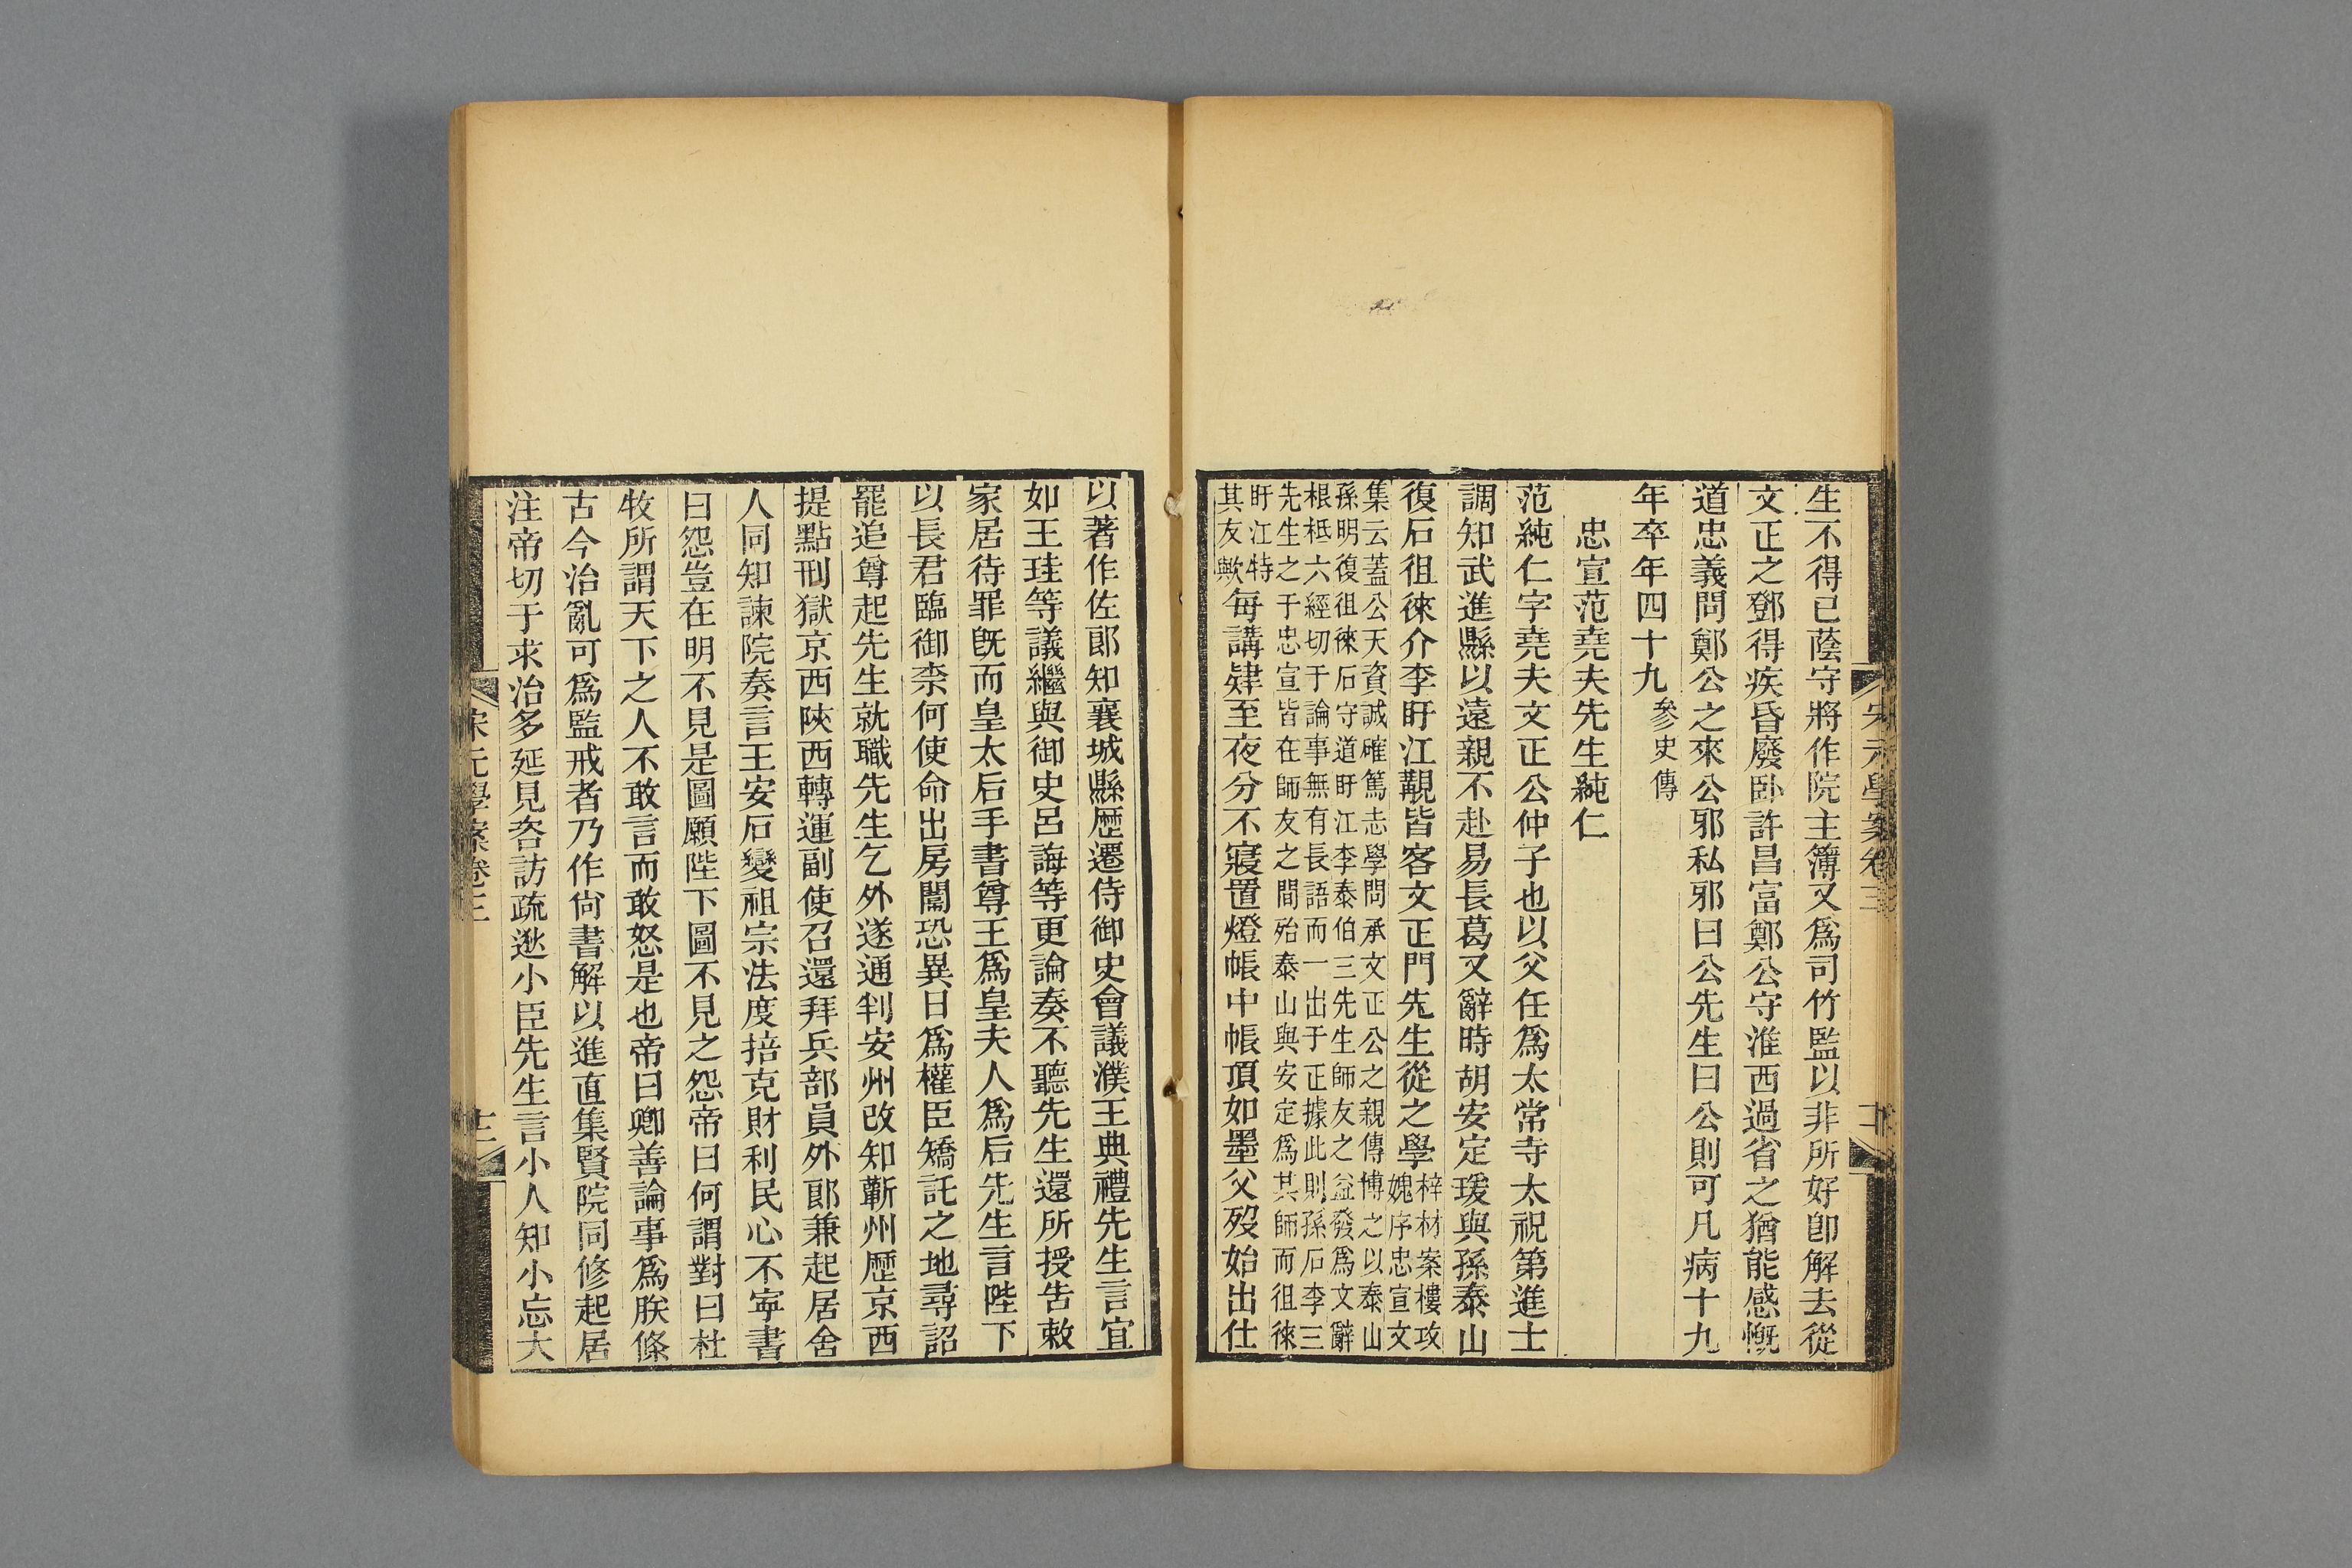 宋元學案卷三
生不得已蔭守將作院主簿又爲司竹監以非所好卽解去從
文正之鄧得疾昏廢臥許昌富鄭公守淮西過省之猶能感慨
道忠義問鄭公之來公邪私邪曰公先生曰公則可凡病十九
年卒年四十九參史傳
忠宣范堯夫先生純仁
范純仁字堯夫文正公仲子也以父任爲太常寺太祝第進士
調知武進縣以遠親不赴易長葛又辭時胡安定瑗與孫泰山
復石徂徠介李盱江覯皆客文正門先生從之學
梓材案樓攻
媿序忠宣文
集云蓋公天資誠確篤志學問承文正公之親傳博之以泰山
孫明復徂徠石守道盱江李泰伯三先生師友之益發爲文辭
根柢六經切于論事無有長語而一出于正據此則孫石李三
先生之于忠宣皆在師友之間殆泰山與安定爲其師而徂徠
盱江特
其友歟
每講肄至夜分不寢置燈帳中帳頂如墨父歿始出仕
以著作佐郎知襄城縣歷遷侍御史會議濮王典禮先生言宜
如王珪等議繼與御史呂誨等更論奏不聽先生還所授告敕
家居待罪旣而皇太后手書尊王爲皇夫人爲后先生言陛下
以長君臨御柰何使命出房闥恐異日爲權臣矯託之地尋詔
罷追尊起先生就職先生乞外遂通判安州改知蘄州歷京西
提點刑獄京西陝西轉運副使召還拜兵部員外郎兼起居舍
人同知諫院奏言王安石變祖宗法度掊克財利民心不寧書
曰怨豈在明不見是圖願陛下圖不見之怨帝曰何謂對曰杜
牧所謂天下之人不敢言而敢怒是也帝曰卿善論事爲朕條
古今治亂可爲監戒者乃作尙書解以進直集賢院同修起居
注帝切于求治多延見咨訪疏逖小臣先生言小人知小忘大
宋元學案卷三